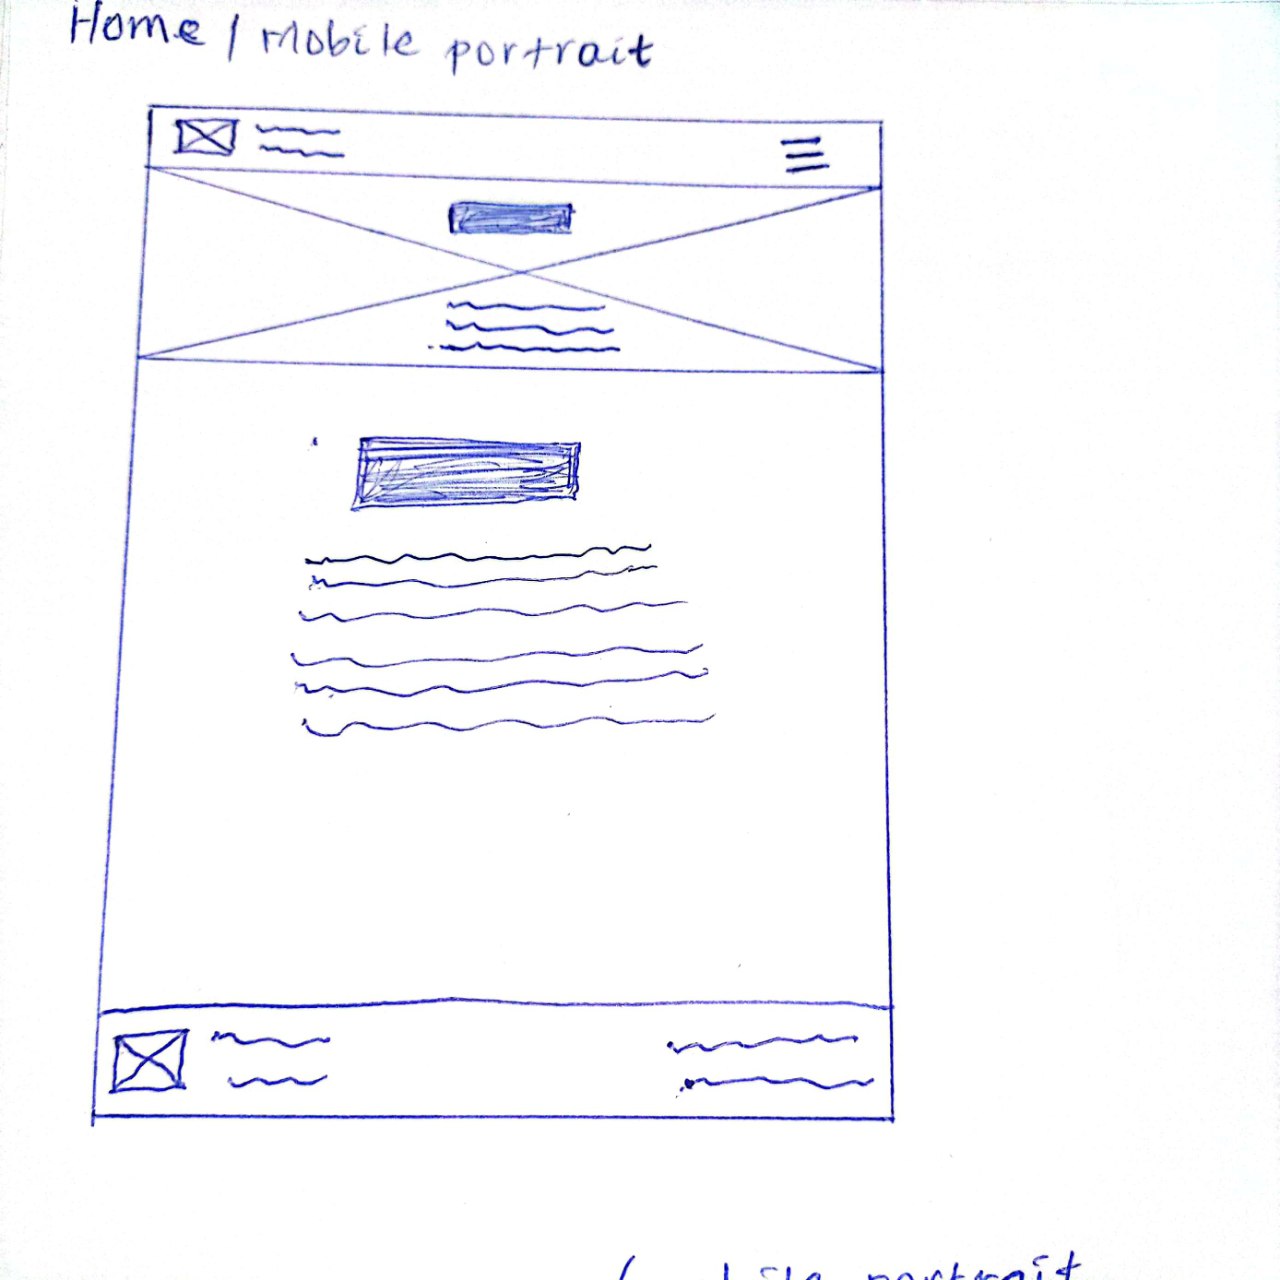 Home / Mobile portrait
portrait